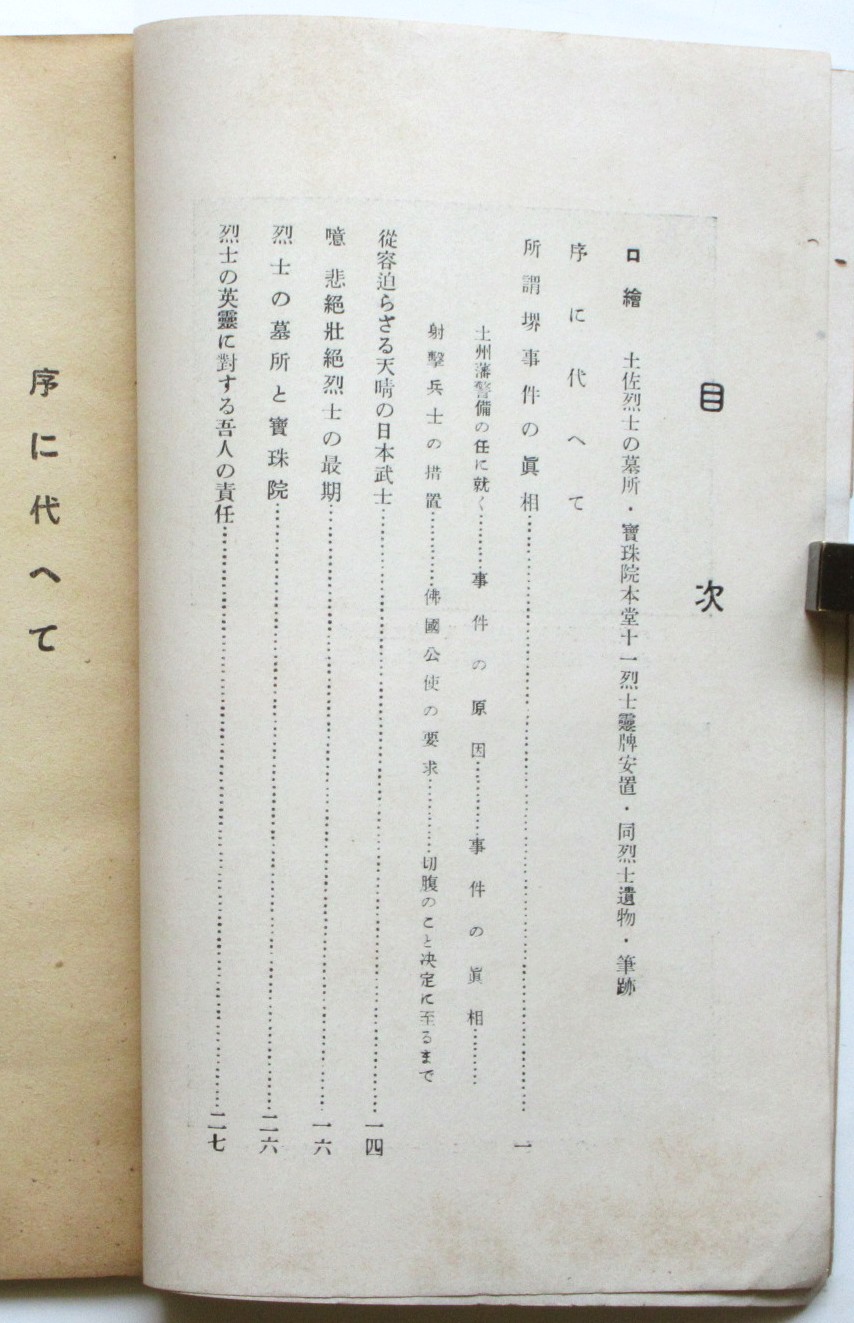 目次
口繪 土佐烈士の墓所・寶珠院本堂十一烈士靈牌安置・同烈士遺物・筆跡
序に代へて
所謂堺事件の眞相……………………一
土州藩警備の任に就く…………事件の原因…………事件の眞相…………
射擊兵士の措置…………佛國公使の要求…………切腹のこと決定に至るまで
從容迫らざる天晴の日本武士……………………一四
噫悲絕壯絕烈士の最期……………………一六
烈士の墓所と寶珠院……………………二六
烈士の英靈に對する吾人の責任……………………二七
序に代へて